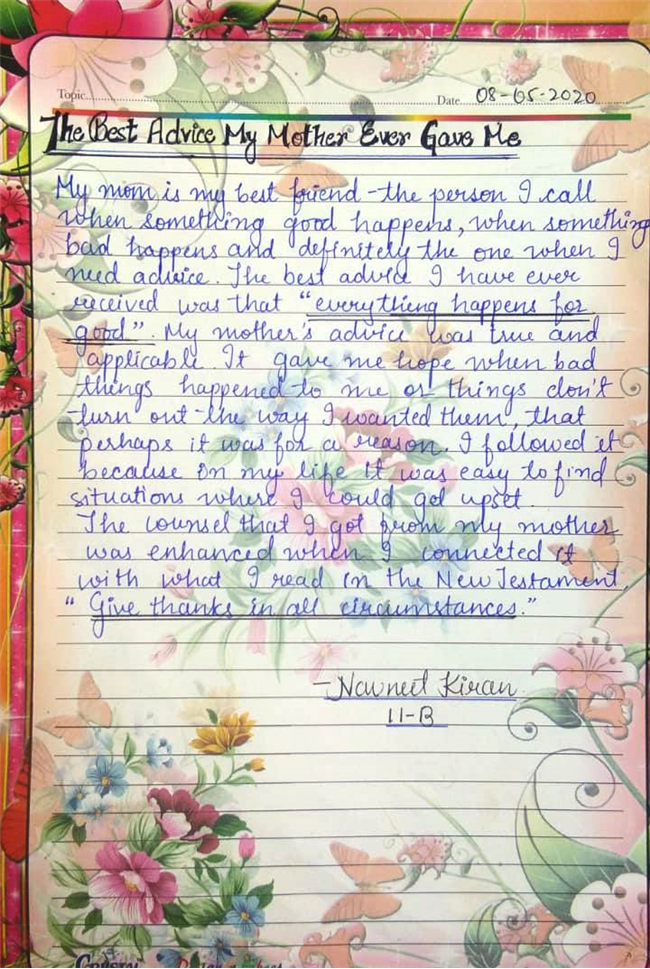 Topic Date 08-05-2020
The Best Advice My Mother Ever Gave Me
My mom is my best friend - the person I call
when something good happens, when something
bad happens and definitely the one when I
need advice. The best advice I have ever
received was that "everything happens for
good". My mother's advice was true and
applicable. It gave me hope when bad
things happened to me or things don't
turn out the way I wanted them, that
perhaps it was for a reason. I followed it
because in my life it was easy to find
situations where I could get upset.
The counsel that I got from my mother
was enhanced when I connected it
with what I read in the New Testament,
"Give thanks in all circumstances."
- Navneet Kiran
11-B